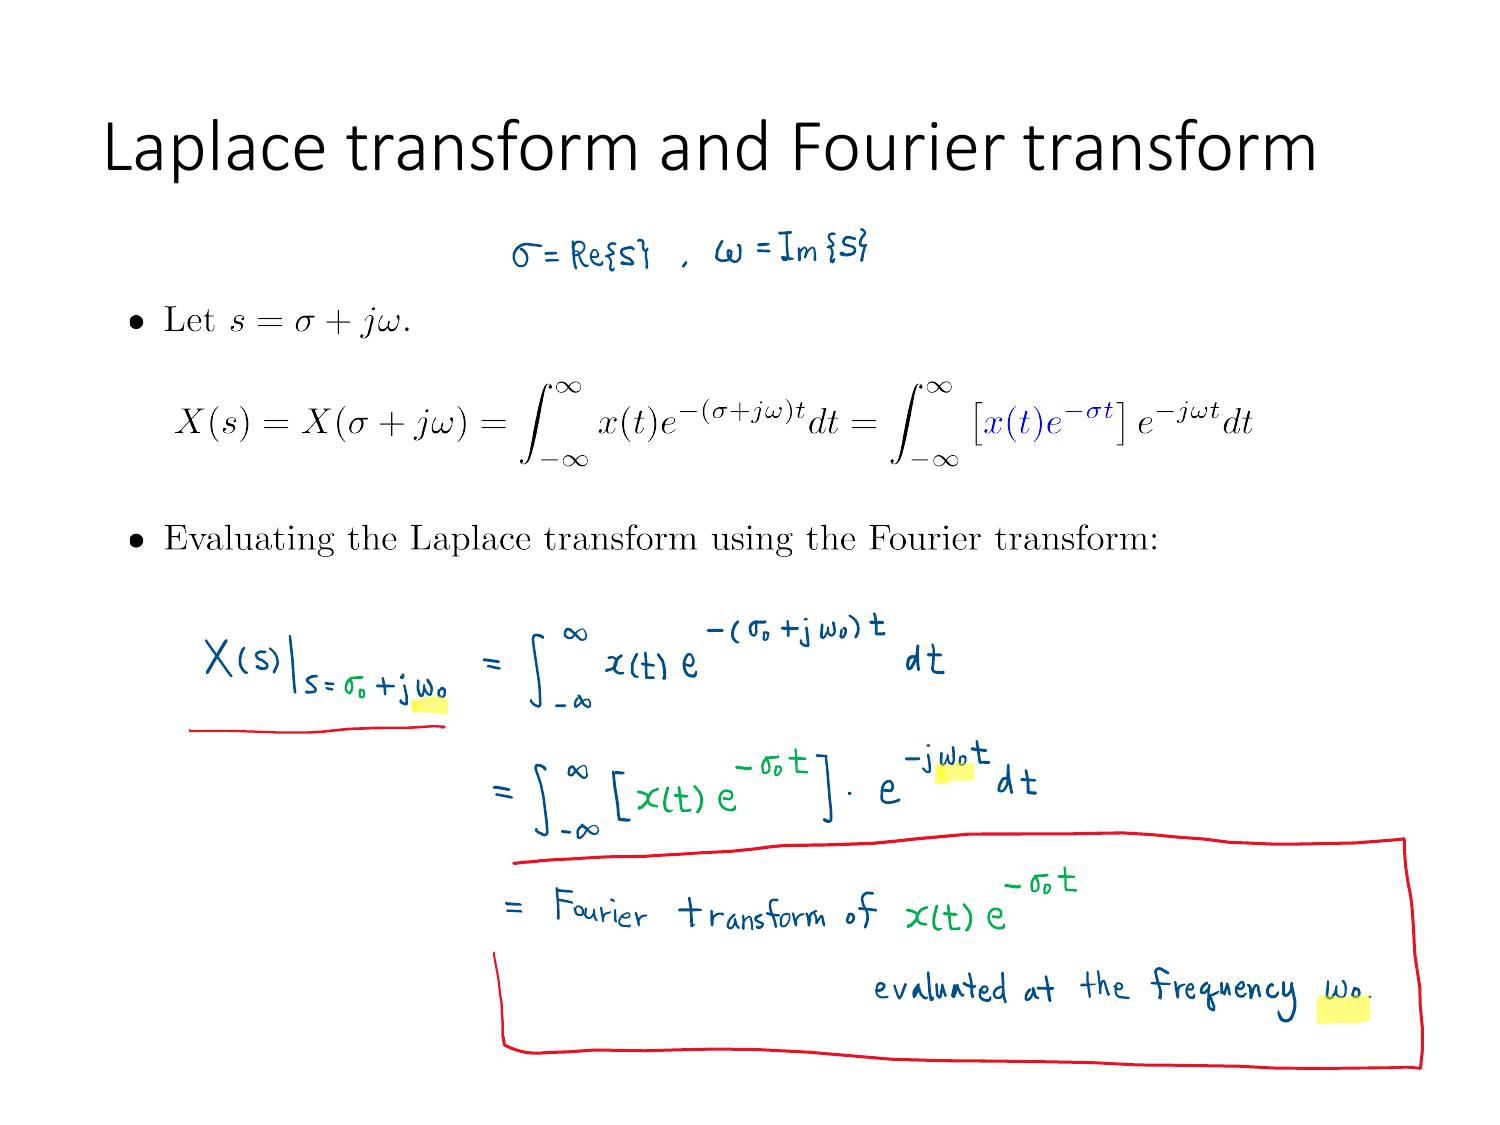 Laplace transform and Fourier transform
σ = Re{s} , ω = Im{s}
• Let s = σ + jω.
X(s) = X(σ + jω) = ∫_{-∞}^{∞} x(t)e^{-(σ+jω)t}dt = ∫_{-∞}^{∞} [x(t)e^{-σt}] e^{-jωt}dt
• Evaluating the Laplace transform using the Fourier transform:
X(s)|_{s=σ₀+jω₀} = ∫_{-∞}^{∞} x(t) e^{-(σ₀+jω₀)t} dt
= ∫_{-∞}^{∞} [x(t) e^{-σ₀t}] · e^{-jω₀t} dt
= Fourier transform of x(t) e^{-σ₀t}
evaluated at the frequency ω₀.